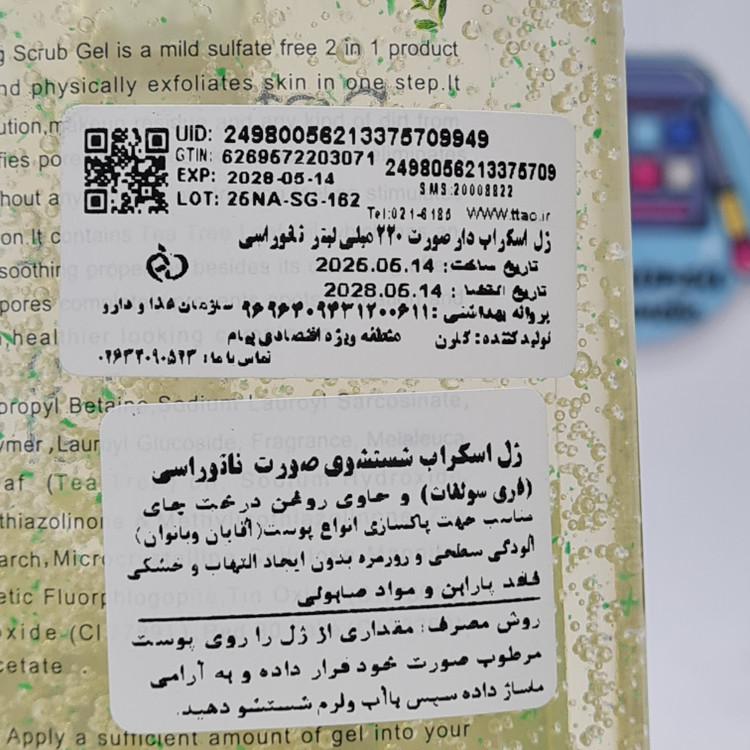 g Scrub Gel is a mild sulfate free 2 in 1 product
nd physically exfoliates skin in one step.It
ution,
fies po
hout a
on.It c
soothing
pores
,heal
UID: 24980056213375709949
GTIN: 6269572203071
24980056213375709
EXP: 2028-05-14
SMS:20008822
LOT: 25NA-SG-162
Tel:021-6185 WWW.ttac.ir
ژل اسکراب دار صورت ۲۲۰ میلی لیتر نانوراسی
تاریخ ساخت: 2025.05.14
تاریخ انقضا: 2028.05.14
پروانه بهداشتی: سازمان غذا و دارو
تولیدکننده: کلون منطقه ویژه اقتصادی پیام
تماس با ما: ۰۲۶۳۲۰۹۰۵۲۳
propyl Betaine,Sodium Lauroyl Sarcosinate,
ymer,Lauryl Glucoside, Fragrance, Melaleuca
af (Tea
thiazolinone
arch,Microcrystalline
etic Fluorphlogopite,Tin Oxide
xide (CI
cetate .
ژل اسکراب شستشوی صورت نانوراسی
(فری سولفات) و حاوی روغن درخت چای
مناسب جهت پاکسازی انواع پوست(آقایان وبانوان)
آلودگی سطحی و روزمره بدون ایجاد التهاب و خشکی
فاقد پارابن و مواد صابونی
روش مصرف: مقداری از ژل را روی پوست
مرطوب صورت خود قرار داده و به آرامی
ماساژ داده سپس باآب ولرم شستشو دهید.
Apply a sufficient amount of gel into your